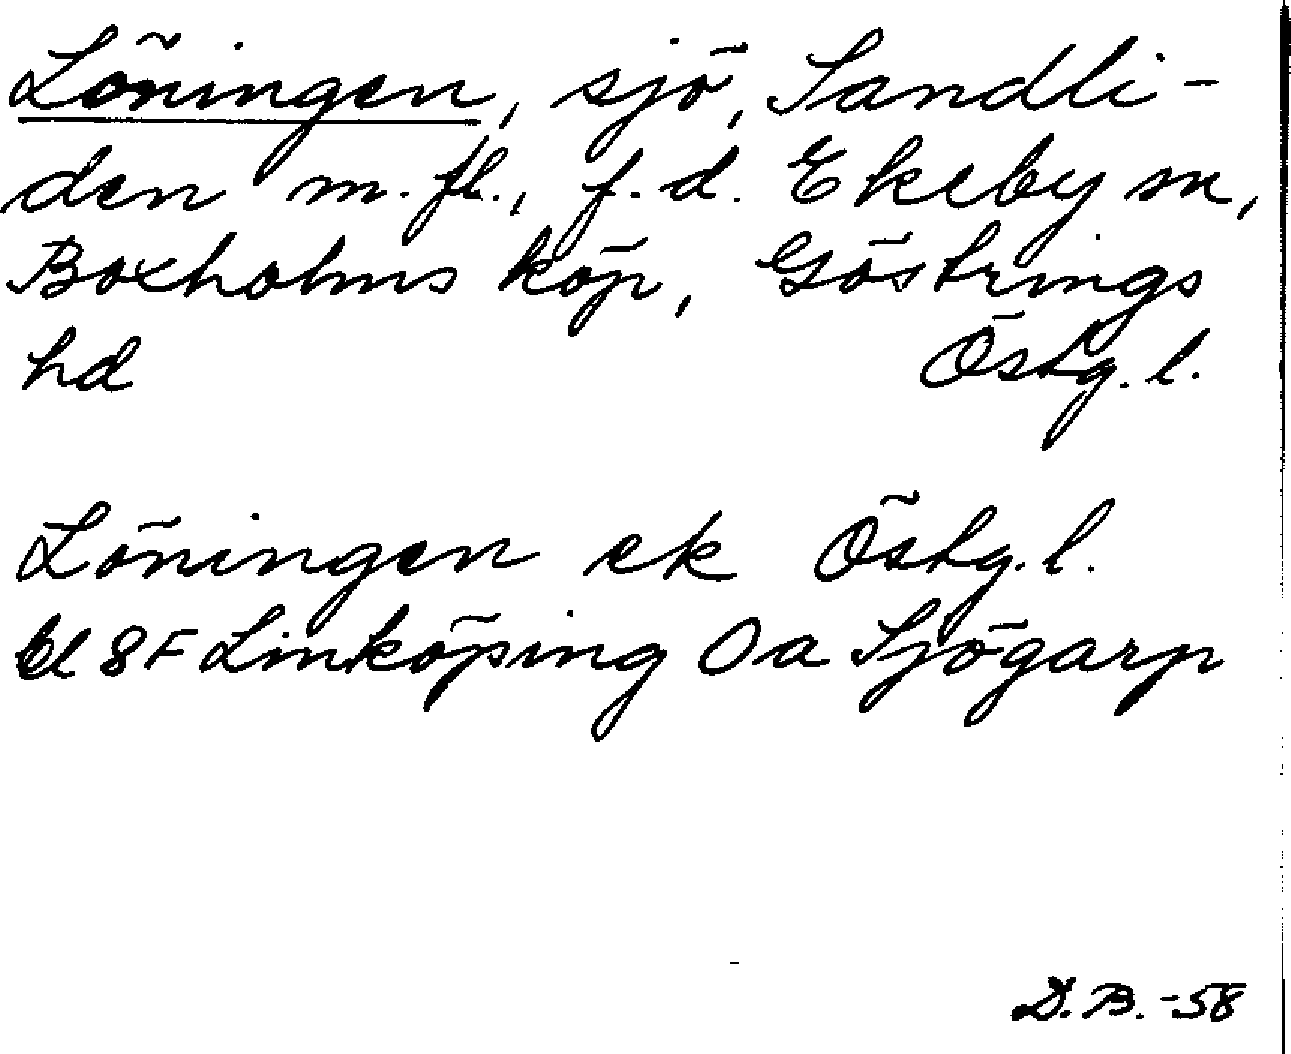 Löningen, sjö, Sandli-
den m. fl., f. d. Ekeby sn,
Boxholms köp, Göstrings
hd Östg. l.
Löningen ek Östg. l.
bl 8F Linköping Oa Sjögarp
D. B. -58